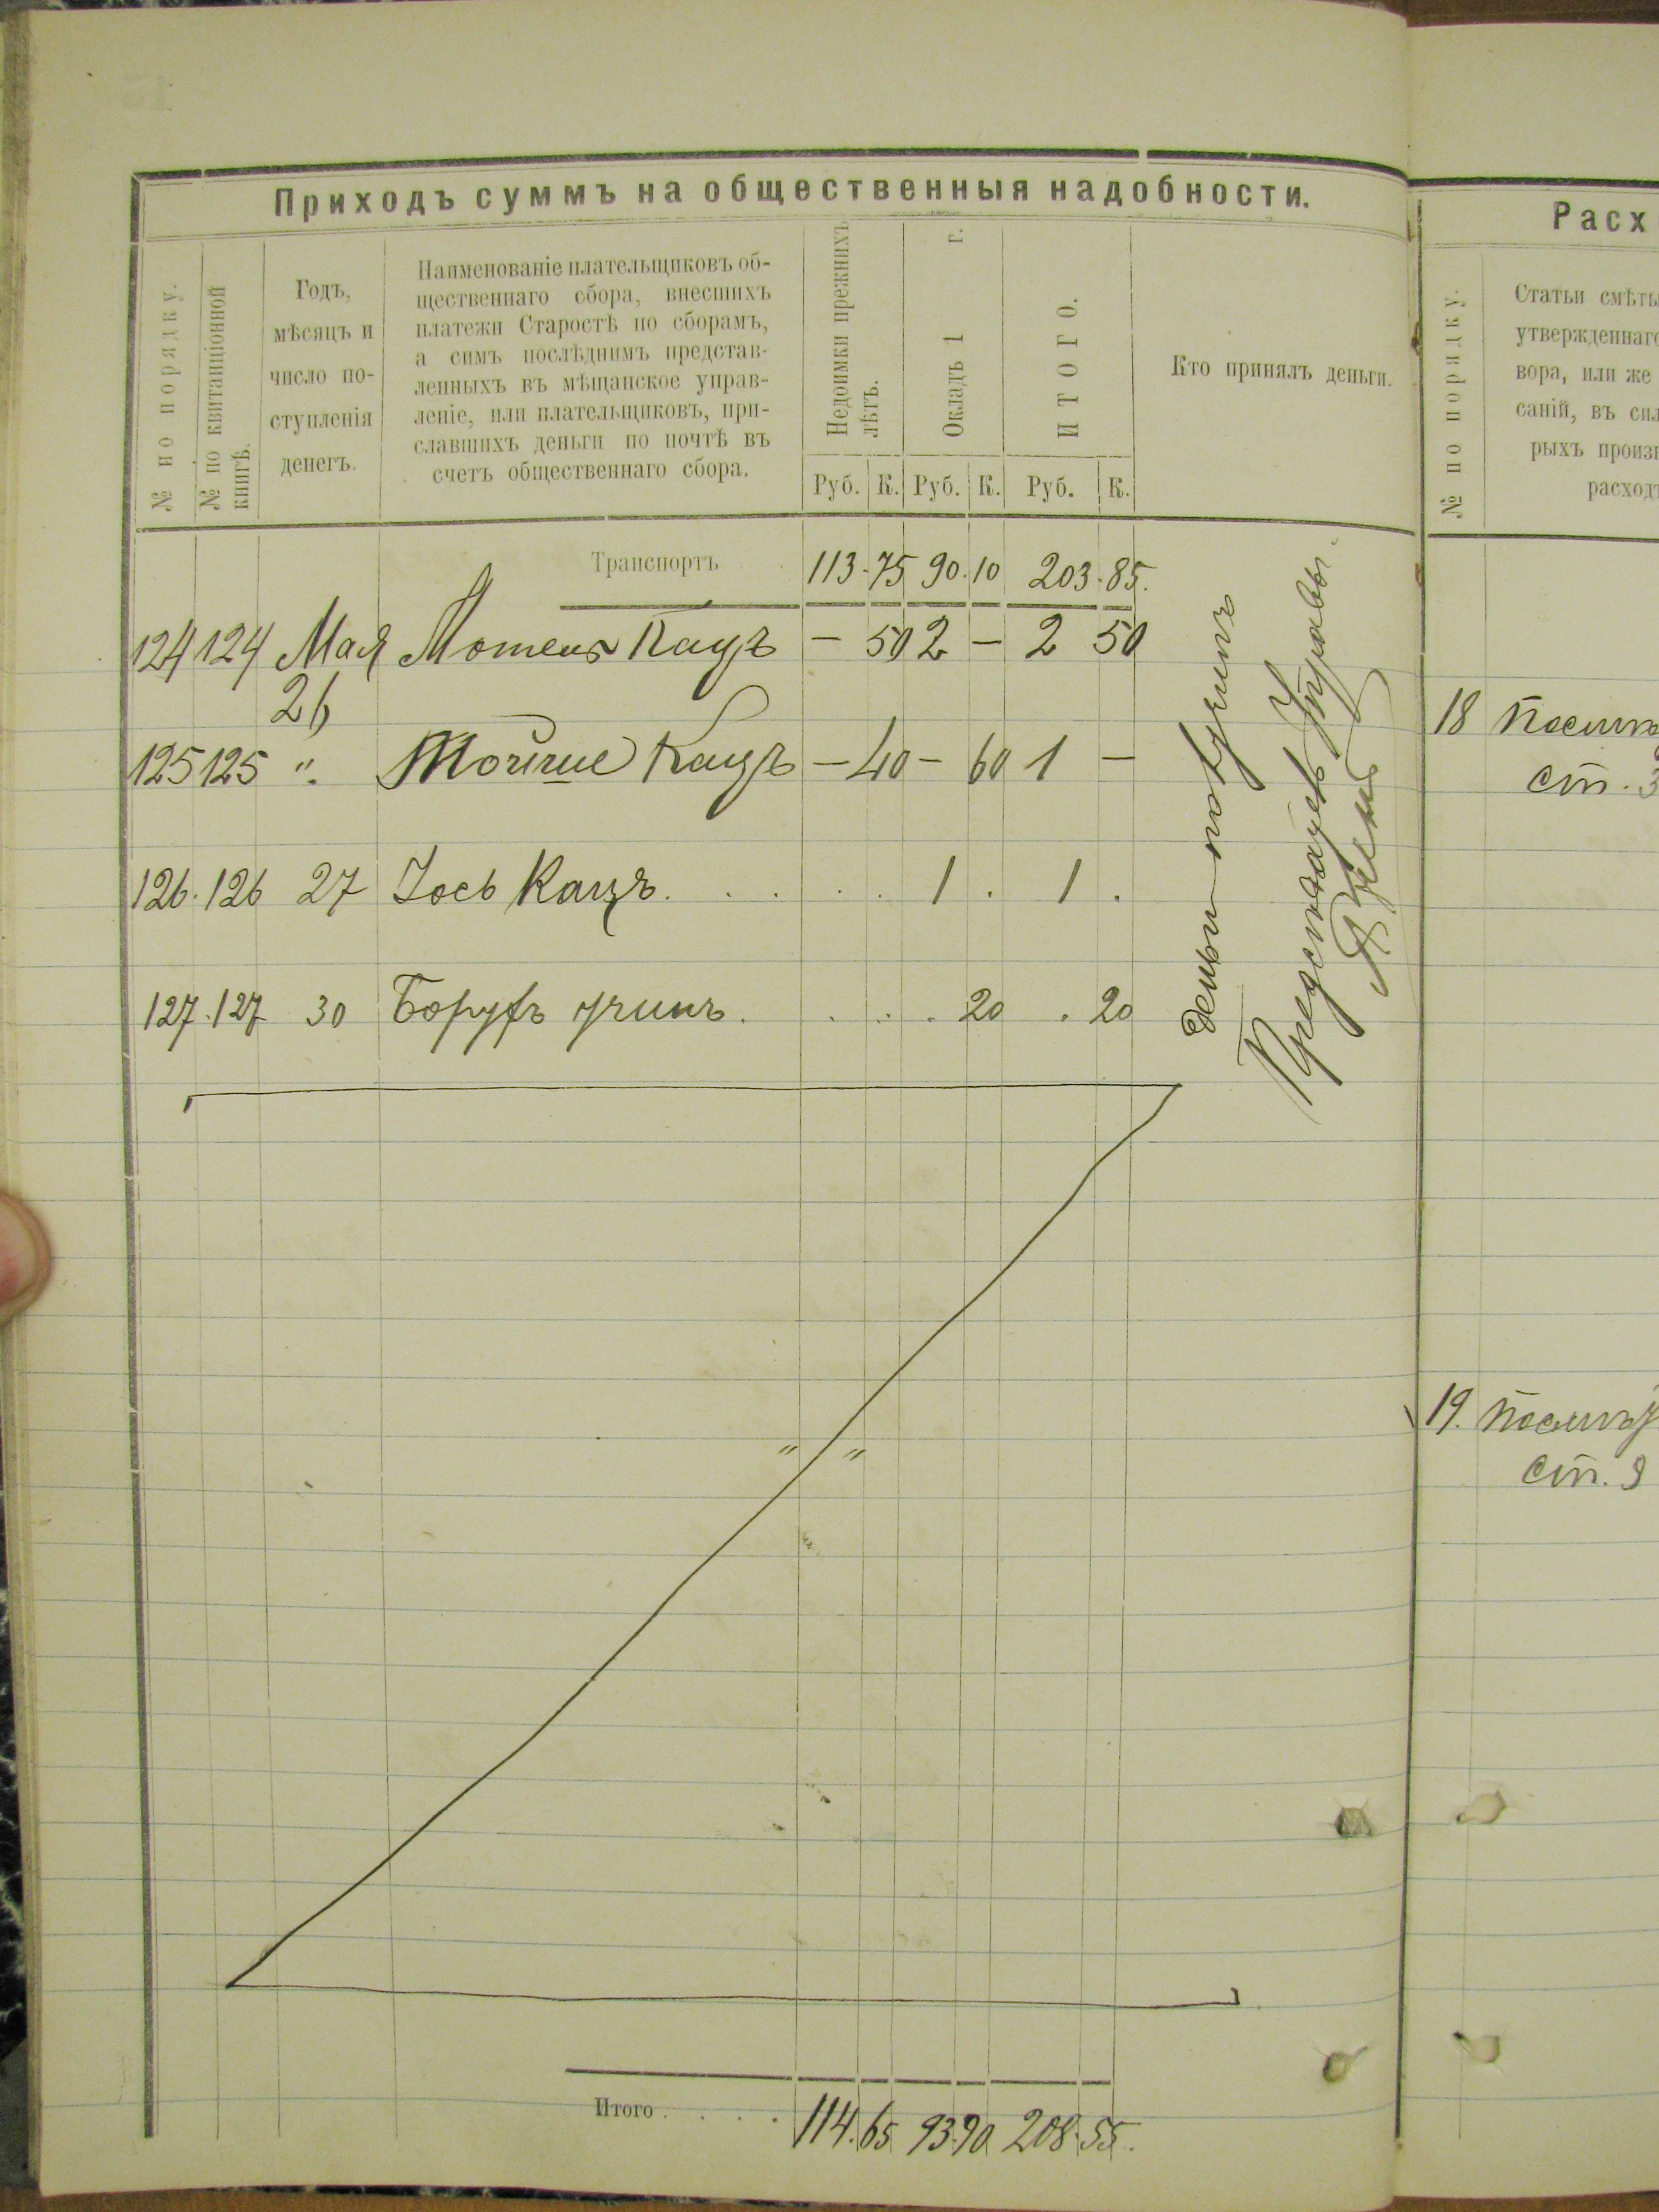 Приходъ суммъ на общественныя надобности.
№ по порядку.
№ по квитанціонной
книгѣ.
Годъ,
мѣсяцъ и
число по-
ступленія
денегъ.
Наименованіе плательщиковъ об-
щественнаго сбора, внесшихъ
платежи Старостѣ по сборамъ,
а симъ послѣднимъ представ-
ленныхъ въ мѣщанское управ-
леніе, или плательщиковъ, при-
славшихъ деньги по почтѣ въ
счетъ общественнаго сбора.
Недоимки прежнихъ
лѣтъ.
Окладъ 1 г.
ИТОГО.
Кто принялъ деньги.
Руб. К. Руб. К. Руб. К.
Транспортъ 113.75 90.10 203.85.
124 124 Мая Мотель Кацъ — 50 2 — 2 50
26
125 125 ". Мойше Кацъ — 40 — 60 1 —
126. 126 27 Іось Кацъ. . . . . 1 . 1 .
127. 127 30 Борухъ . . . . 20 . 20
Деньги получилъ
Предсѣдатель Управы
" "
Итого . . . . 114.65 93.90 208.55.
Расх
№ по порядку.
Статьи смѣты
утвержденнаго
вора, или же
саній, въ сил
рыхъ произв
расход
18
ст. 3
19.
ст. 9